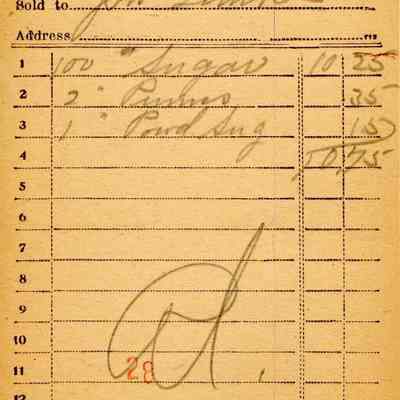 Sold to
Address
1 100 " Sugar 10 25
2 2 " Prunes 35
3 1 " Powd Sug 15
4 10,75
5
6
7
8
9
10
11 28
12